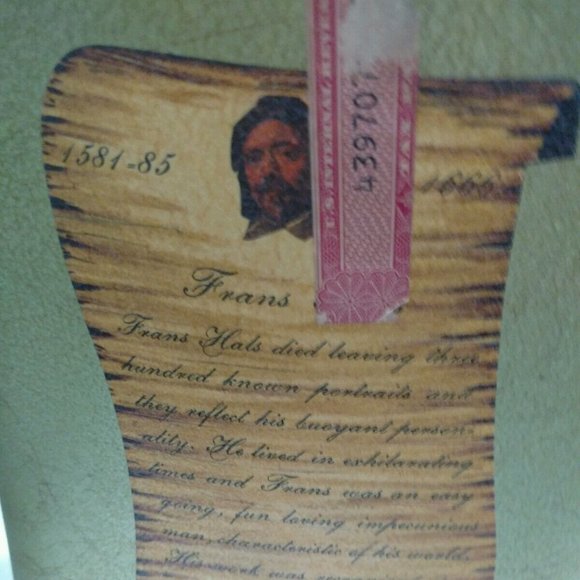 1581-85
1666
U.S. INTERNAL REVEN
439707
TAX
Frans
Frans Hals died leaving three
hundred known portraits and
they reflect his buoyant person-
ality. He lived in exhilarating
times and Frans was an easy
going, fun loving impecunious
man, characteristic of his world.
His work was